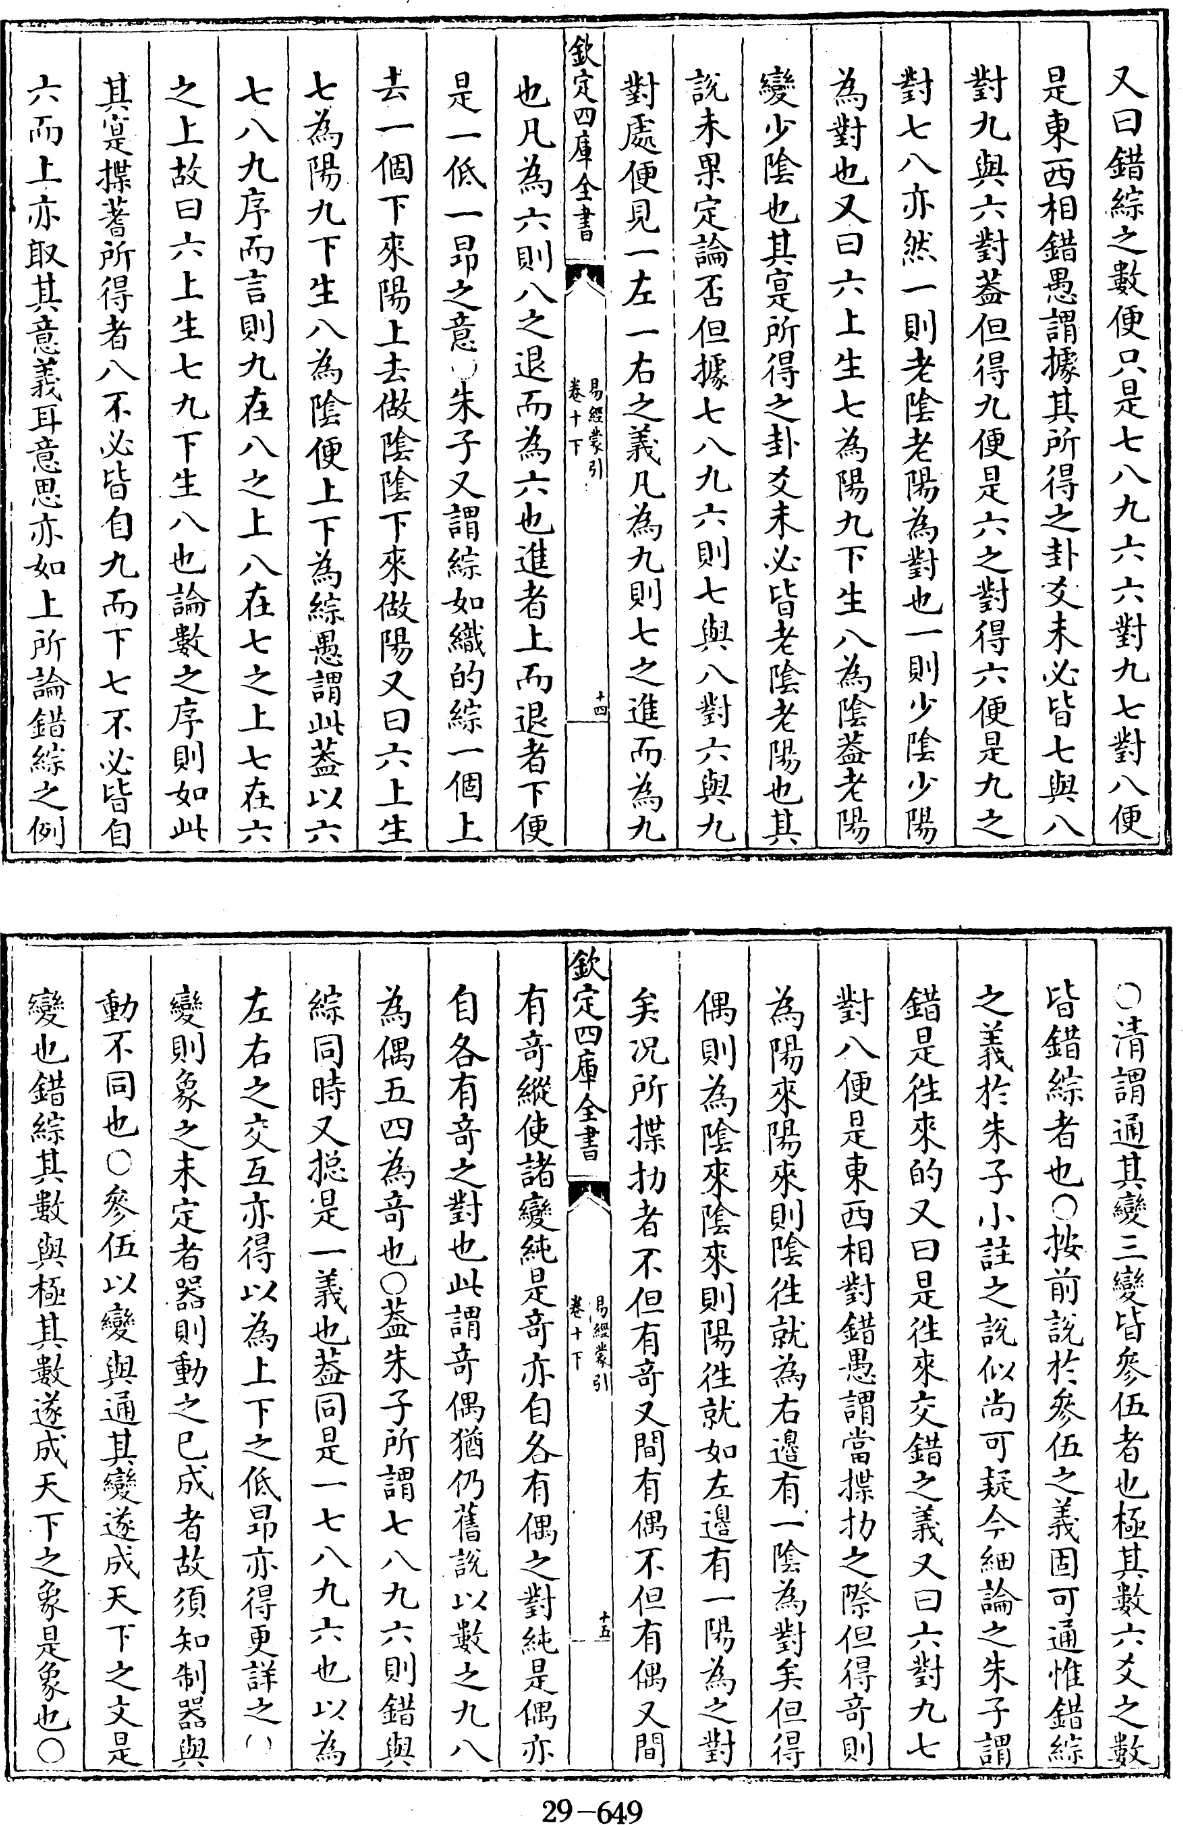 又曰錯綜之數便只是七八九六六對九七對八便
是東西相錯愚謂據其所得之卦爻未必皆七與八
對九與六對葢但得九便是六之對得六便是九之
對七八亦然一則老隂老陽為對也一則少隂少陽
為對也又曰六上生七為陽九下生八為隂葢老陽
變少隂也其寔所得之卦爻未必皆老隂老陽也其
説未果定論否但據七八九六則七與八對六與九
對處便見一左一右之義凡為九則七之進而為九
欽定四庫全書
易經蒙引
卷十下
十四
也凡為六則八之退而為六也進者上而退者下便
是一低一昂之意○朱子又謂綜如織的綜一個上
去一個下來陽上去做隂隂下來做陽又曰六上生
七為陽九下生八為隂便上下為綜愚謂此葢以六
七八九序而言則九在八之上八在七之上七在六
之上故曰六上生七九下生八也論數之序則如此
其寔揲蓍所得者八不必皆自九而下七不必皆自
六而上亦取其意義耳意思亦如上所論錯綜之例
○清謂通其變三變皆參伍者也極其數六爻之數
皆錯綜者也○按前説於參伍之義固可通惟錯綜
之義於朱子小註之説似尚可疑今細論之朱子謂
錯是徃來的又曰是徃來交錯之義又曰六對九七
對八便是東西相對錯愚謂當揲扐之際但得竒則
為陽來陽來則隂徃就為右邊有一隂為對矣但得
偶則為隂來隂來則陽徃就如左邊有一陽為之對
矣况所揲扐者不但有竒又間有偶不但有偶又間
欽定四庫全書
易經蒙引
卷十下
十五
有竒縱使諸變純是竒亦自各有偶之對純是偶亦
自各有竒之對也此謂竒偶猶仍舊説以數之九八
為偶五四為竒也○葢朱子所謂七八九六則錯與
綜同時又揔是一義也葢同是一七八九六也以為
左右之交互亦得以為上下之低昂亦得更詳之○
變則象之未定者器則動之已成者故須知制器與
動不同也○參伍以變與通其變遂成天下之文是
變也錯綜其數與極其數遂成天下之象是象也○
29-649